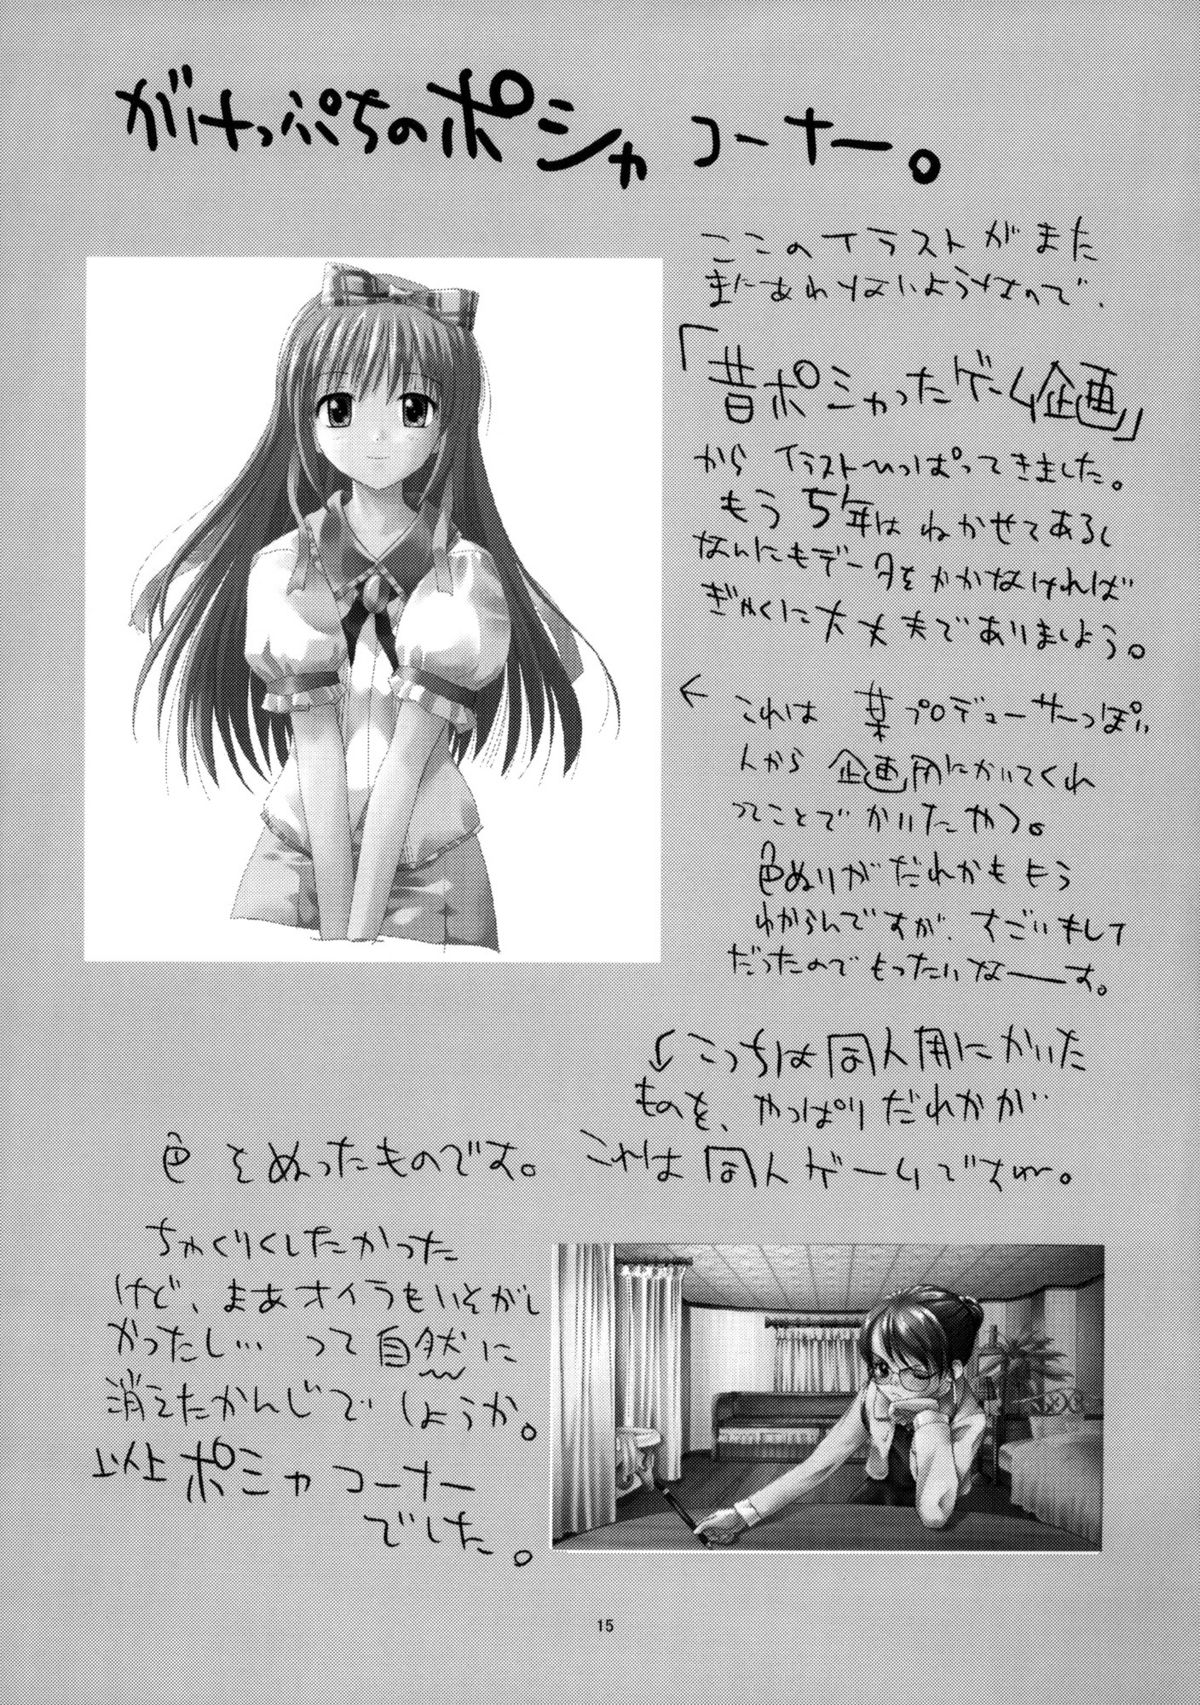 がけっぷちのポシャコーナー。
ここのイラストがまた
まにあわないようなので、
「昔ポシャったゲーム企画」
から イラストひっぱってきました。
もう5年はねかせてあるし
なんにもデータをかかなければ
ぎゃくに大丈夫でありましょう。
← これは 某プロデューサーっぽい
人から 企画用にかいてくれ
ってことでかいたやつ。
色ぬりがだれかももう
わからんですが、すごいまして
だったのでもったいなーす。
↓こっちは同人用にかいた
ものを、やっぱりだれかが
色をぬったものです。これは同人ゲームですね。
ちゃくりくしたかった
けど、まあオイラもいそがし
かったし… って自然に
消えたかんじでしょうか。
以上ポシャコーナー
でした。
15